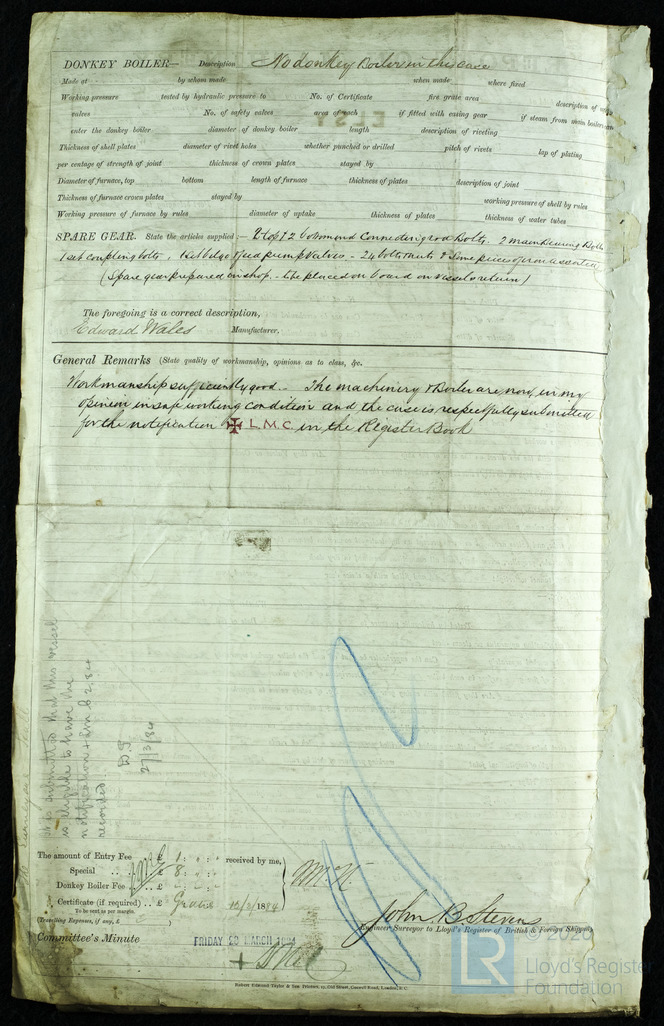 DONKEY BOILER— Description No donkey Boiler in this case
Made at by whom made when made where fixed
Working pressure tested by hydraulic pressure to No. of Certificate fire grate area description of
valves No. of safety valves area of each if fitted with easing gear if steam from main boilers can
enter the donkey boiler diameter of donkey boiler length description of riveting
Thickness of shell plates diameter of rivet holes whether punched or drilled pitch of rivets lap of plating
per centage of strength of joint thickness of crown plates stayed by
Diameter of furnace, top bottom length of furnace thickness of plates description of joint
Thickness of furnace crown plates stayed by working pressure of shell by rules
Working pressure of furnace by rules diameter of uptake thickness of plates thickness of water tubes
SPARE GEAR. State the articles supplied:— 2 top & 2 bottom end Connecting rod Bolts. 2 main bearing Bolts
1 set coupling bolts, 1 set bilge & feed pump valves - 24 bolts & nuts & some pieces of iron assorted
(Spare gear prepared in shop - to be placed on board on vessels return)
The foregoing is a correct description,
Edward Wales Manufacturer.
General Remarks (State quality of workmanship, opinions as to class, &c.
Workmanship sufficiently good. - The machinery & Boiler are, now, in my
opinion in safe working condition and the case is respectfully submitted
for the notification of ✠ L.M.C. in the Register Book
It is submitted that this vessel
is eligible to have the
notification + LMC 2.84
recorded.
27/3/84
The amount of Entry Fee .. £ 1 : " : " received by me,
Special .. .. £ 8 : " : "
Donkey Boiler Fee .. £ " : " : "
Certificate (if required) .. £ Gratis 12/3/1884
To be sent as per margin.
(Travelling Expenses, if any, £ )
John B Stevens
Engineer Surveyor to Lloyd's Register of British & Foreign Shipping
Committee's Minute FRIDAY 28 MARCH 1884
Robert Edmund Taylor & Son Printers, 19, Old Street, Goswell Road, London, E.C.
© 2020
LR Lloyd's Register
Foundation